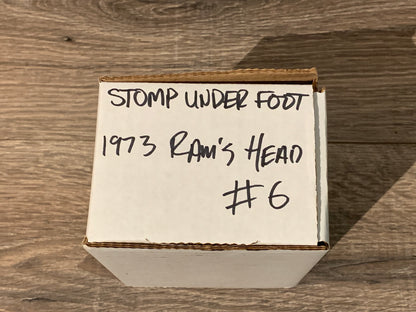 STOMP UNDER FOOT
1973 RAM'S HEAD
#6